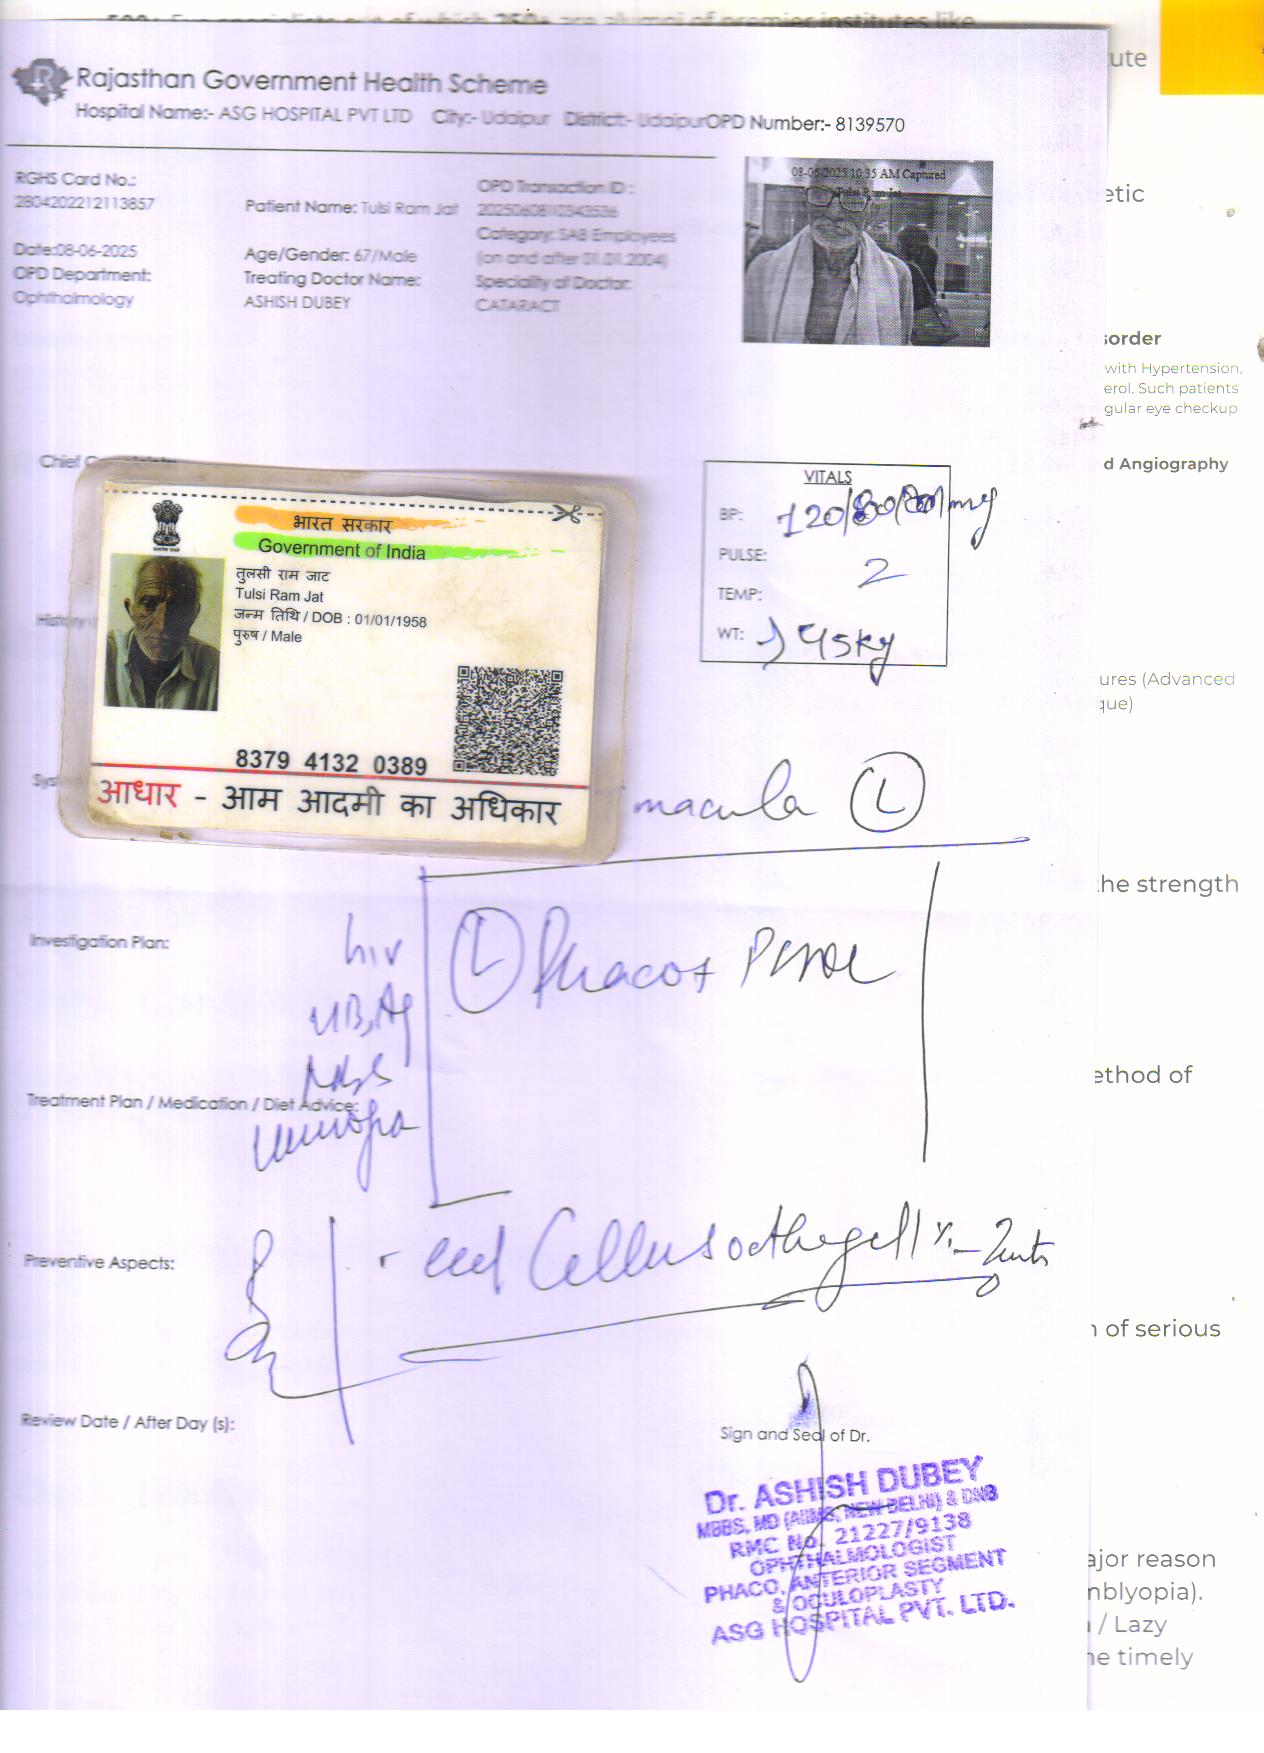 500+ Eye specialists out of which 250+ are alumni of premier institutes like
Rajasthan Government Health Scheme
Hospital Name:- ASG HOSPITAL PVT LTD City:- Udaipur District:- Udaipur OPD Number:- 8139570
RGHS Card No.:
2804202212113857
Patient Name: Tulsi Ram Jat
OPD Transaction ID :
Category: SAB Employees
(on and after 01.01.2004)
Date:08-06-2025
Age/Gender: 67/Male
OPD Department:
Ophthalmology
Treating Doctor Name:
ASHISH DUBEY
Speciality of Doctor:
CATARACT
08-06-2025 10:35 AM Captured
Tulsi Ram Jat
Chief
VITALS
BP: 120/80
PULSE:
TEMP:
WT:
भारत सरकार
Government of India
तुलसी राम जाट
Tulsi Ram Jat
जन्म तिथि / DOB : 01/01/1958
पुरुष / Male
8379 4132 0389
आधार - आम आदमी का अधिकार
macula (L)
Investigation Plan:
hiv
(L) Phaco+
Treatment Plan / Medication / Diet Advice:
Preventive Aspects:
Review Date / After Day (s):
Sign and Seal of Dr.
Dr. ASHISH DUBEY
MBBS, MD (AIIMS, NEW DELHI) & DNB
RMC No. 21227/9138
OPHTHALMOLOGIST
PHACO, ANTERIOR SEGMENT
& OCULOPLASTY
ASG HOSPITAL PVT. LTD.
ute
etic
sorder
with Hypertension,
erol. Such patients
gular eye checkup
d Angiography
ures (Advanced
que)
he strength
ethod of
n of serious
ajor reason
mblyopia).
/ Lazy
he timely